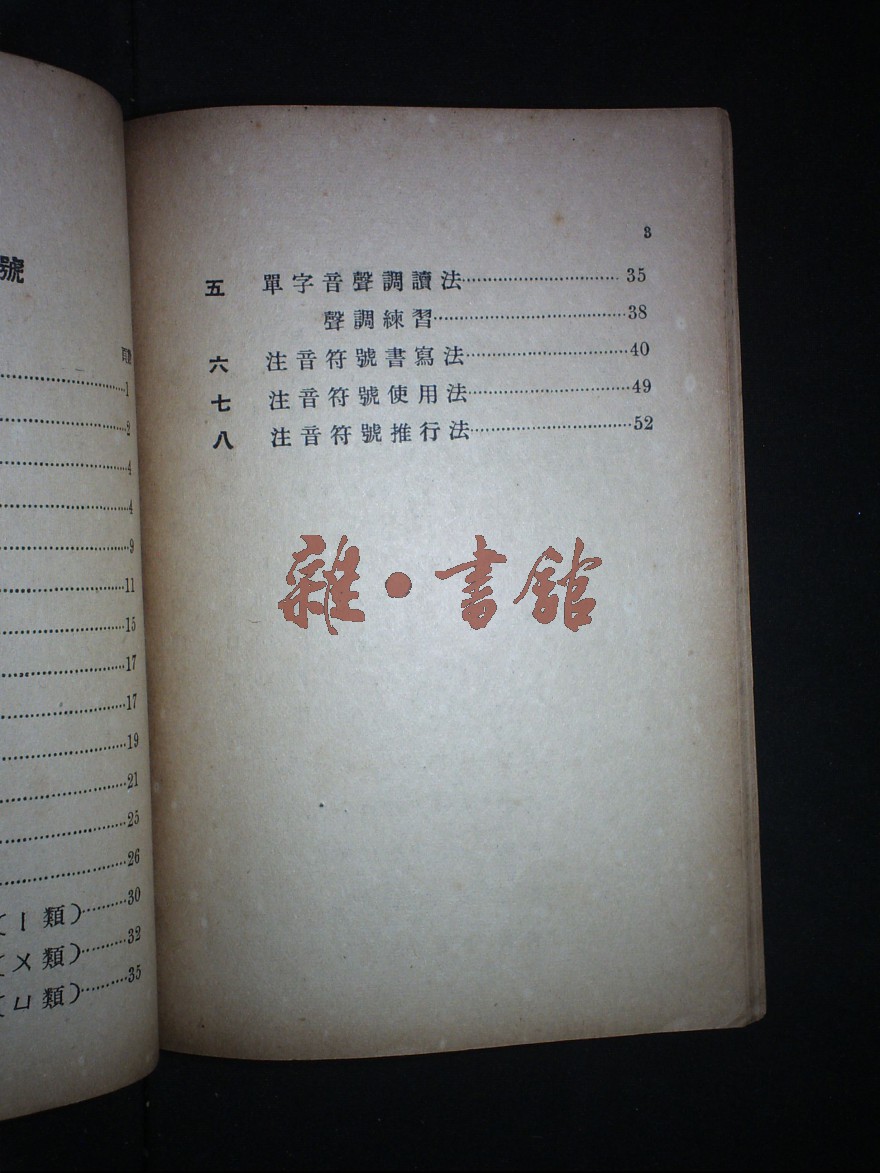 號
頁數
1
2
4
4
9
11
15
17
17
19
21
25
26
(ㄧ類)………30
(ㄨ類)………32
(ㄩ類)………35
3
五 單字音聲調讀法………35
聲調練習………38
六 注音符號書寫法………40
七 注音符號使用法………49
八 注音符號推行法………52
雜·書館